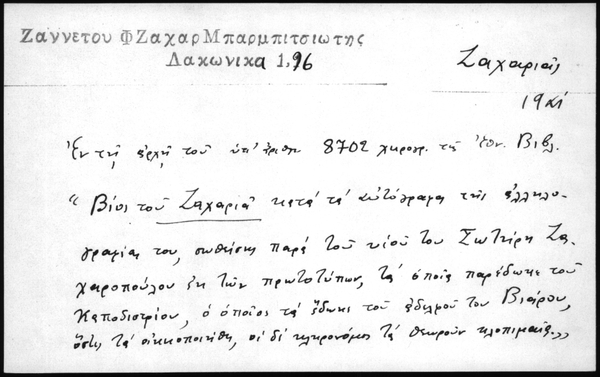 Ζαννετου Φ Ζαχαρ Μπαρμπιτσιωτης
Λακωνικα 1,96
Ζαχαριᾶς
19
Ἐν τῇ ἀρχῇ τοῦ ὑπ' ἀριθμ 8702 χειρογρ. τῆς Ἐθν. Βιβλ.
"Βίος τοῦ Ζαχαριᾶ κατὰ τὰ αὐτόγραφα τῆς ἀλληλο-
γραφίας του, σωθείσης παρὰ τοῦ υἱοῦ του Σωτήρη Ζα-
χαροπούλου ἐκ τῶν πρωτοτύπων, τὰ ὁποῖα παρέδωκε τοῦ
Καποδιστρίου, ὁ ὁποῖος τὰ ἔδωκε τοῦ ἀδελφοῦ του Βιάρου,
ὅστις τὰ οἰκειοποιήθη, οἱ δὲ κληρονόμοι τὰ θεωροῦν κλοπιμαῖα..."